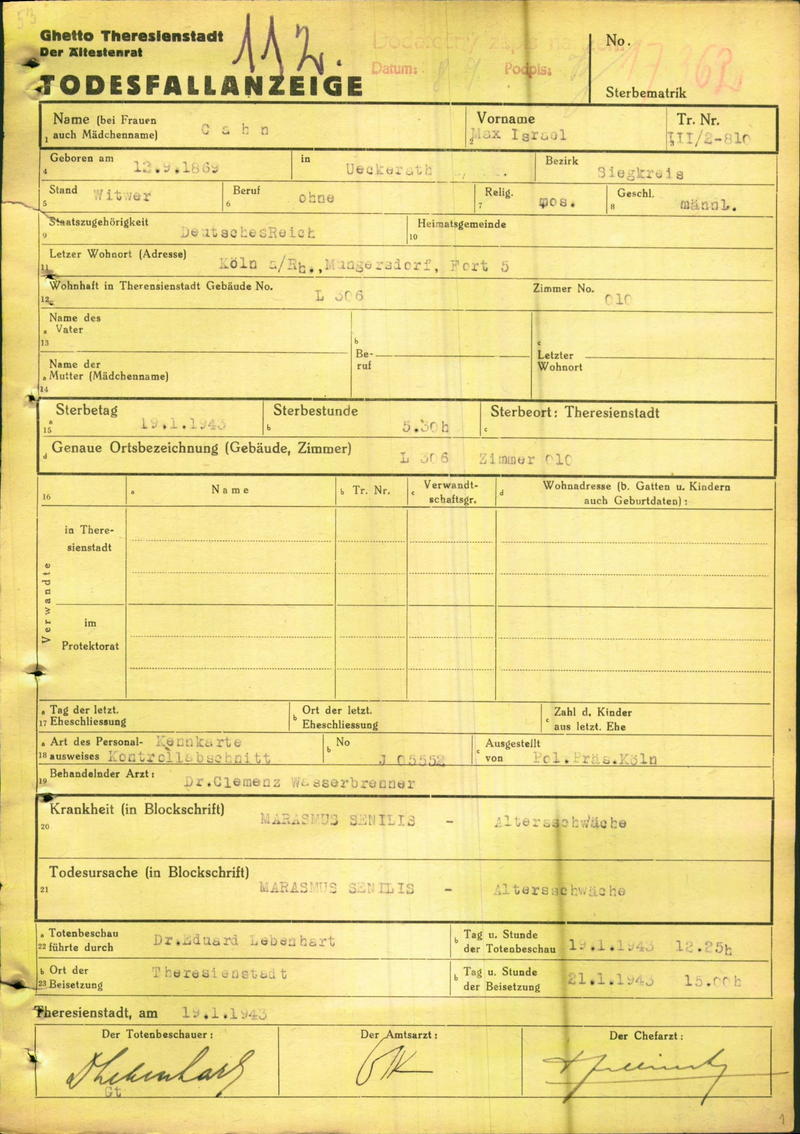 53
Ghetto Theresienstadt
Der Ältestenrat
112.
TODESFALLANZEIGE
Datum: Podpis:
No. 17362
Sterbematrik
Name (bei Frauen auch Mädchenname) Cahn
1
Vorname Max Israel
2
Tr. Nr. III/2-810
3
Geboren am 12.9.1869 in Ueckerath Bezirk Siegkreis
4
Stand Witwer Beruf ohne Relig. mos. Geschl. männl.
5 6 7 8
Staatszugehörigkeit DeutschesReich Heimatsgemeinde
9 10
Letzer Wohnort (Adresse) Köln a/Rh.,Müngersdorf, Fort 5
11
Wohnhaft in Theresienstadt Gebäude No. L 306 Zimmer No. 010
12
Name des
a Vater
13
b Beruf
c Letzter Wohnort
Name der
a Mutter (Mädchenname)
14
Sterbetag 19.1.1943 Sterbestunde 5.30h Sterbeort: Theresienstadt
a b c
15
d Genaue Ortsbezeichnung (Gebäude, Zimmer) L 306 Zimmer 010
16 a Name b Tr. Nr. c Verwandtschaftsgr. d Wohnadresse (b. Gatten u. Kindern auch Geburtdaten):
Verwandte
in Theresienstadt
im Protektorat
a Tag der letzt. b Ort der letzt. c Zahl d. Kinder
17 Eheschliessung Eheschliessung aus letzt. Ehe
a Art des Personal- Kennkarte b No c Ausgestellt
18 ausweises Kontrollabschnitt J 05552 von Pol.Präs.Köln
Behandelnder Arzt: Dr.Clemenz Wasserbrenner
19
Krankheit (in Blockschrift) MARASMUS SENILIS - Altersschwäche
20
Todesursache (in Blockschrift) MARASMUS SENILIS - Altersschwäche
21
a Totenbeschau Dr.Eduard Lebenhart b Tag u. Stunde
22 führte durch der Totenbeschau 19.1.1943 12.25h
b Ort der Theresienstadt b Tag u. Stunde
23 Beisetzung der Beisetzung 21.1.1943 15.00h
Theresienstadt, am 19.1.1943
Der Totenbeschauer: Der Amtsarzt: Der Chefarzt:
Gt
1